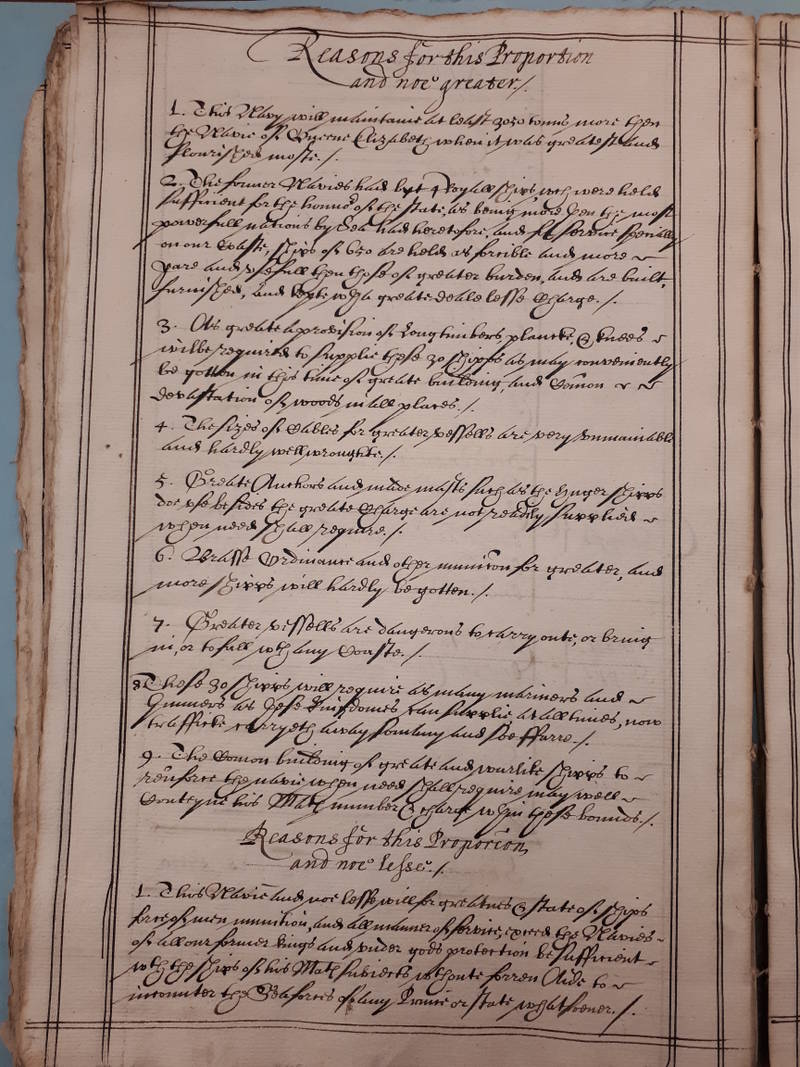 Reasons for this Proportion
and noe greater./.
1. This Navy will maintaine at least 3050 tonns more then
the Navie of Queene Elizabeth when it was greatest and
flourished moste./.
2. The former Navies had but 4 Royall ships, wch were held
sufficient for the honnor of the State, as being more then the most
powerfull nations by Sea had heretofore, and for service specially
on our Coaste, ships of 650 are held as forcible and more
yare and usefull then those of greater burden, and are built,
furnished, and kepte wth a greate deale lesse Charge./.
3. As greate a provision of Long timbers, plancke, & knees
wilbe required to supplie these 30 shipps as may conveniently
be gotten in this time of greate building, and Comon
devastation of woods in all places./.
4. The sizes of Cables for greater vessells are very unmainable
and hardly well wroughte./.
5. Greate Anchors and made masts such as the huger shipps
doe use besides the greate Charge are not readily supplied
when need shall require./.
6. Brasse Ordinance and other munition for greater, and
more shipps will hardly be gotten./.
7. Greater vessells are dangerous to carry oute, or bring
in, or to fall wth any Coaste./.
8. These 30 shipps will require as many mariners and
Gunners as these Kingdomes can supplie at all times, now
traffick carryeth away so many and soe ffarre./.
9. The Comon building of greate and warlike shipps to
reinforce the navie when need shall require may well
Conteyne his Mats number & charge wthin these bounds./.
Reasons for this Proporcion
and noe lesse./.
1. This Navie and noe lesse will for greatnes & state of ships
force of men munition, and all manner of service, exceed the Navies
of all our former kings and under gods protection be sufficient
wth the ships of his Mats subiects wthoute forren Aide to
incounter the Sea forces of any Prince or State whatsoever./.